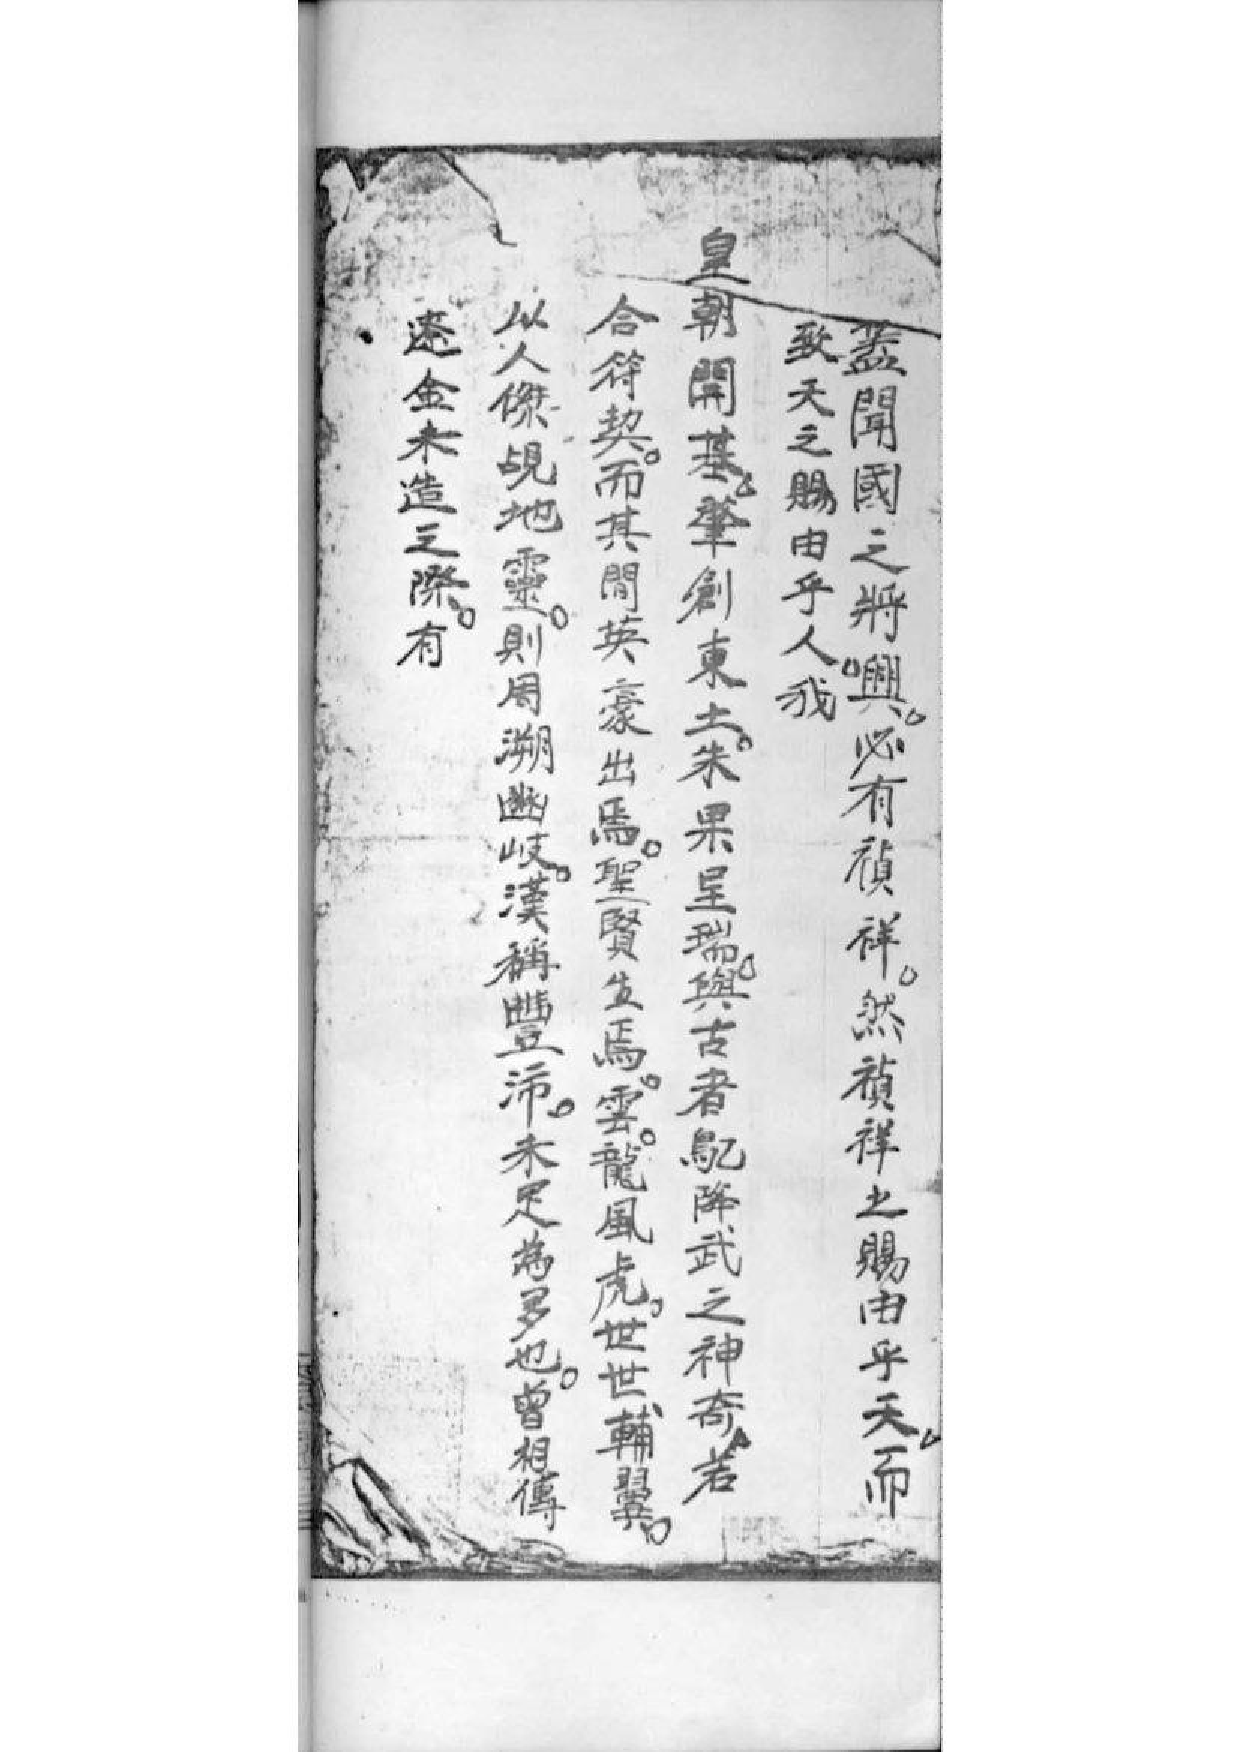 蓋聞國之將興必有禎祥然禎祥之賜由乎天而
致天之賜由乎人我
皇朝開基肇創東土朱果呈瑞與古者鳦降武之神奇若
合符契而其間英豪出焉聖賢生焉雲龍風虎世世輔翼
以人傑覘地靈則周溯豳岐漢稱豐沛未足為多也曾相傳
遼金未造之際有